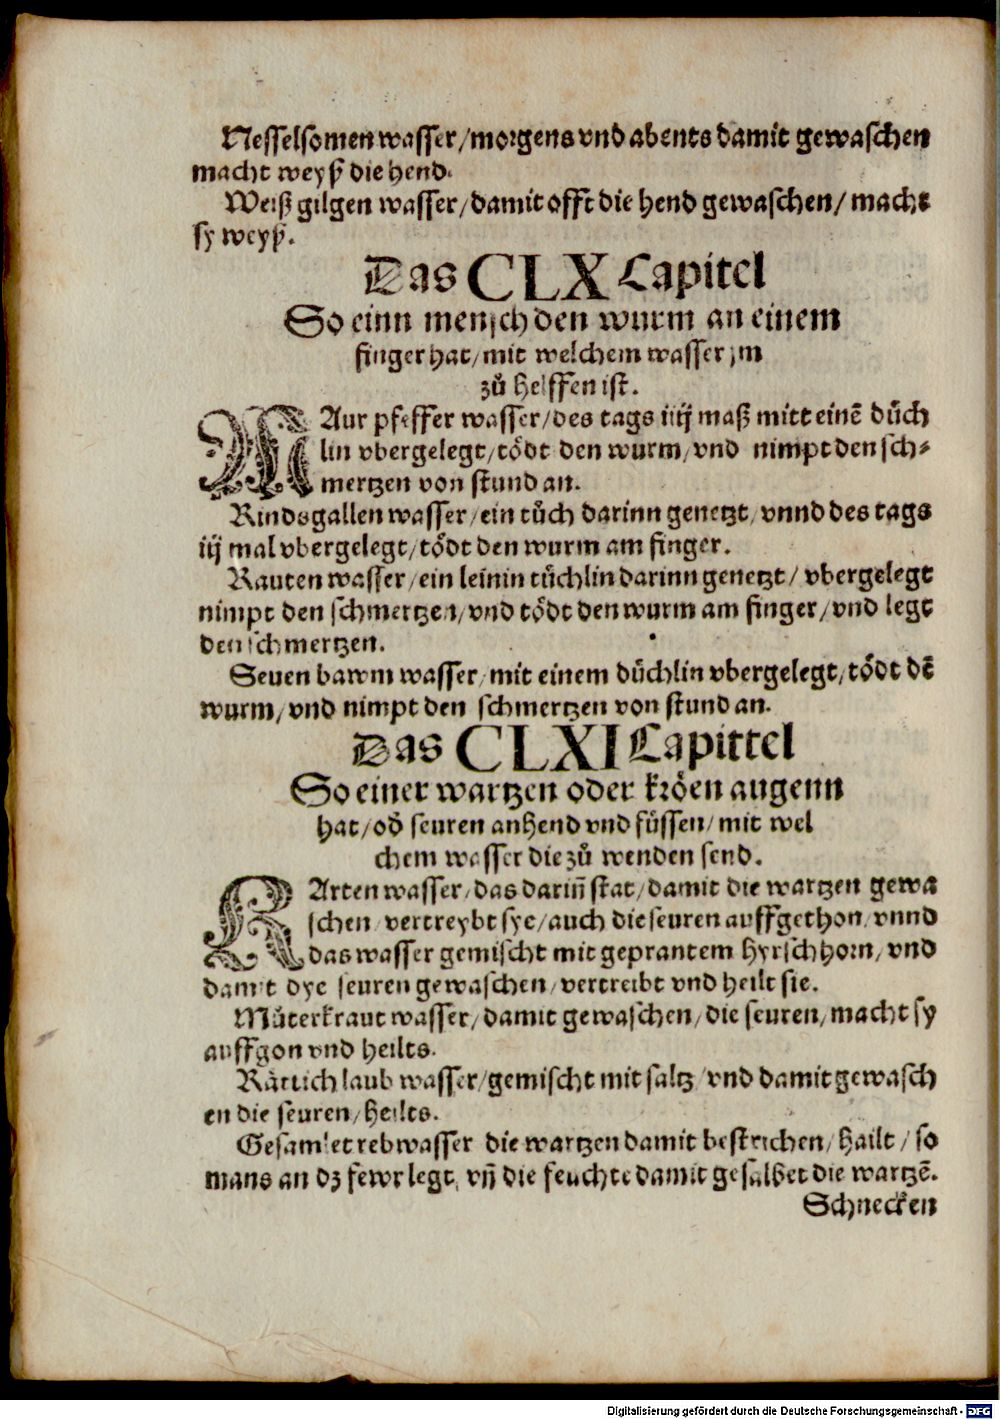 Nesselsomen wasser/morgens vnd abents damit gewaschen
macht weyß die hend.
Weiß gilgen wasser/damit offt die hend gewaschen/ macht
sy weyß.
Das CLX Capitel
So einn mensch den wurm an einem
finger hat/mit welchem wasser jm
zů helffen ist.
MAur pfeffer wasser/des tags iiij maß mitt einē důch
lin vbergelegt/tödt den wurm/vnd nimpt den sch-
mertzen von stund an.
Rindsgallen wasser/ein tůch darinn genetzt/vnnd des tags
iij mal vbergelegt/tödt den wurm am finger.
Rauten wasser/ein leinin tůchlin darinn genetzt/ vbergelegt
nimpt den schmertzen/vnd tödt den wurm am finger/vnd legt
den schmertzen.
Seuen bawm wasser/mit einem důchlin vbergelegt/tödt dē
wurm/vnd nimpt den schmertzen von stund an.
Das CLXI Capittel
So einer wartzen oder kröen augenn
hat/oď seuren an hend vnd füssen/mit wel
chem wasser die zů wenden send.
KArten wasser/das dariñ stat/damit die wartzen gewa
schen/vertreybt sye/auch die seuren auffgethon/vnnd
das wasser gemischt mit geprantem hyrsch horn/vnd
damit dye seuren gewaschen/vertreibt vnd heilt sie.
Můterkraut wasser/damit gewaschen/die seuren/macht sy
auffgon vnd heilts.
Rättich laub wasser/gemischt mit saltz/vnd damit gewasch
en die seuren/heilts.
Gesamlet rebwasser die wartzen damit bestrichen/hailt/so
mans an dz fewr legt, vñ die feuchte damit gesalbet die wartzē.
Schnecken
Digitalisierung gefördert durch die Deutsche Forschungsgemeinschaft - DFG